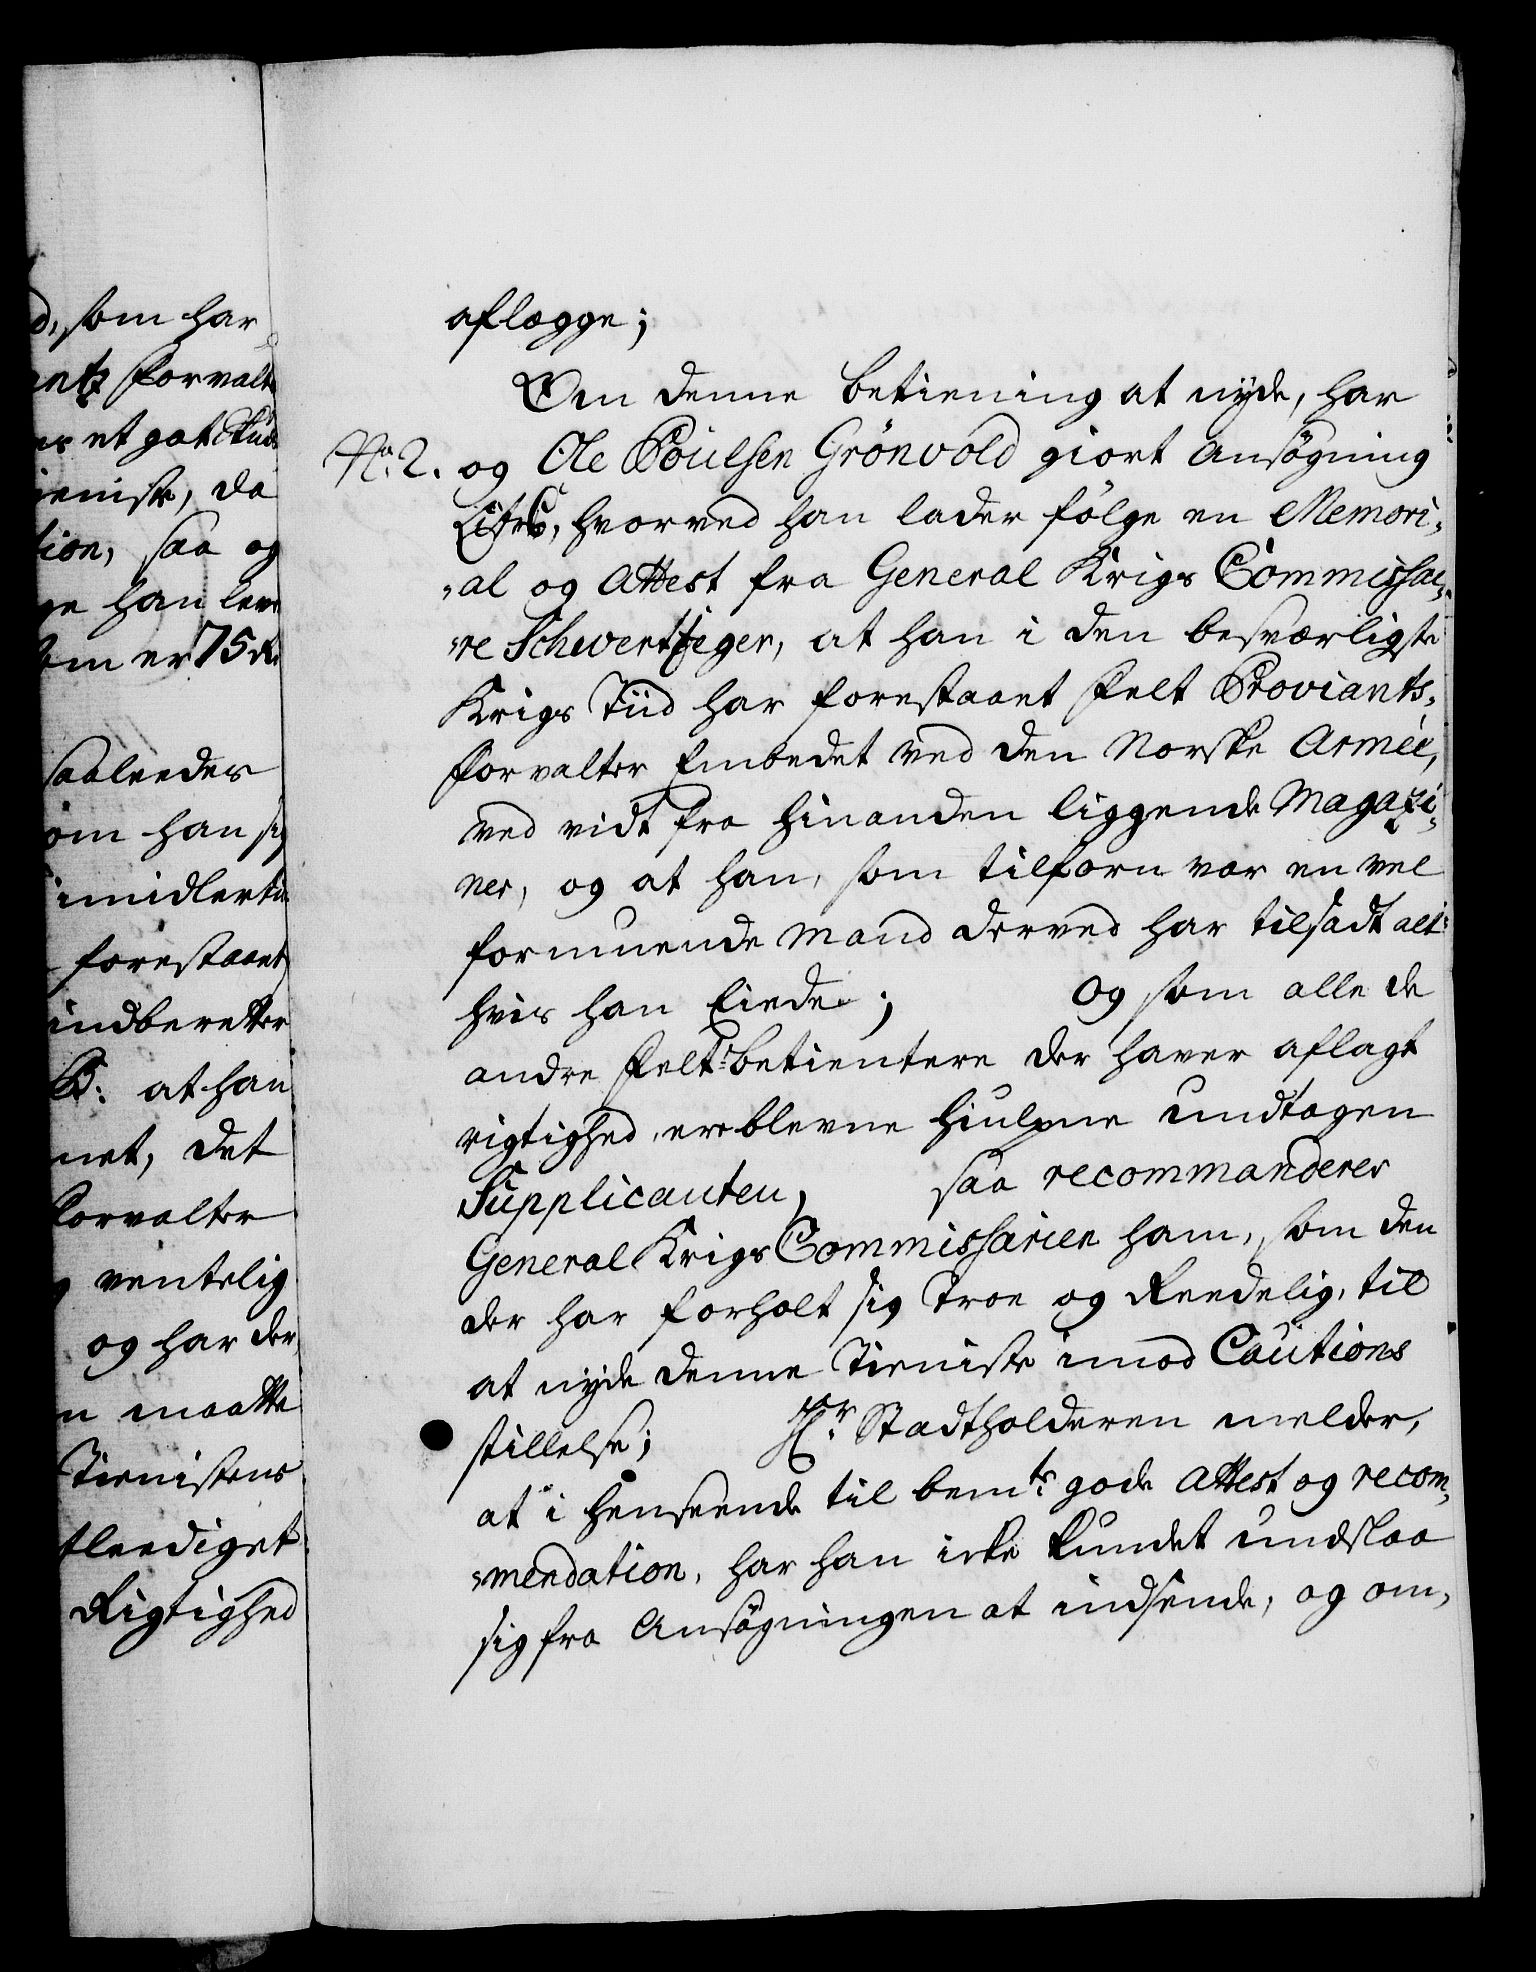 d, som har
antz Forvalt
et got Skud
ienist, da
tion, saa og
ge han lev
om er 75 Rd
saaleedes
om han sig
imidlertid
forestaaet
indberetter
B: at han
net, det
Forvalter
ventelig
og har der
n maatte
Tienistens
tleediget
Rigtighed
aflægge;
Om denne betiening at nyde, har
No. 2. og Ole Poulsen Grönvold giort Ansögning
Litr: C, hvorved han lader fölge en Memori„
„al og Attest fra General Krigs Commissai„
„re Schwertfeger, at han i den besværligste
Krigs Tiid har forestaaet Felt Proviants„
Forvalter Embedet ved den Norske Armée,
ved vidt fra hinanden liggende Magazi„
ner, og at han, som tilforn var en vel
formuende Mand derved har tilsadt alt
hvis han Eiede; og som alle de
andre Felt-betientere der haver aflagt
rigtighed, ere blevne hiulpne undtagen
Supplicanten, saa recommanderer
General Krigs Commissarien ham, som den
der har forholt sig Troe og Reedelig, til
at nyde denne Tieniste imod Cautions
stillelse; Hr. Stadtholderen melder,
at i henseende til bemte. gode Attest og recom„
„mendation, har han icke kundet undslaa
sig fra Ansögningen at indsende, og om„